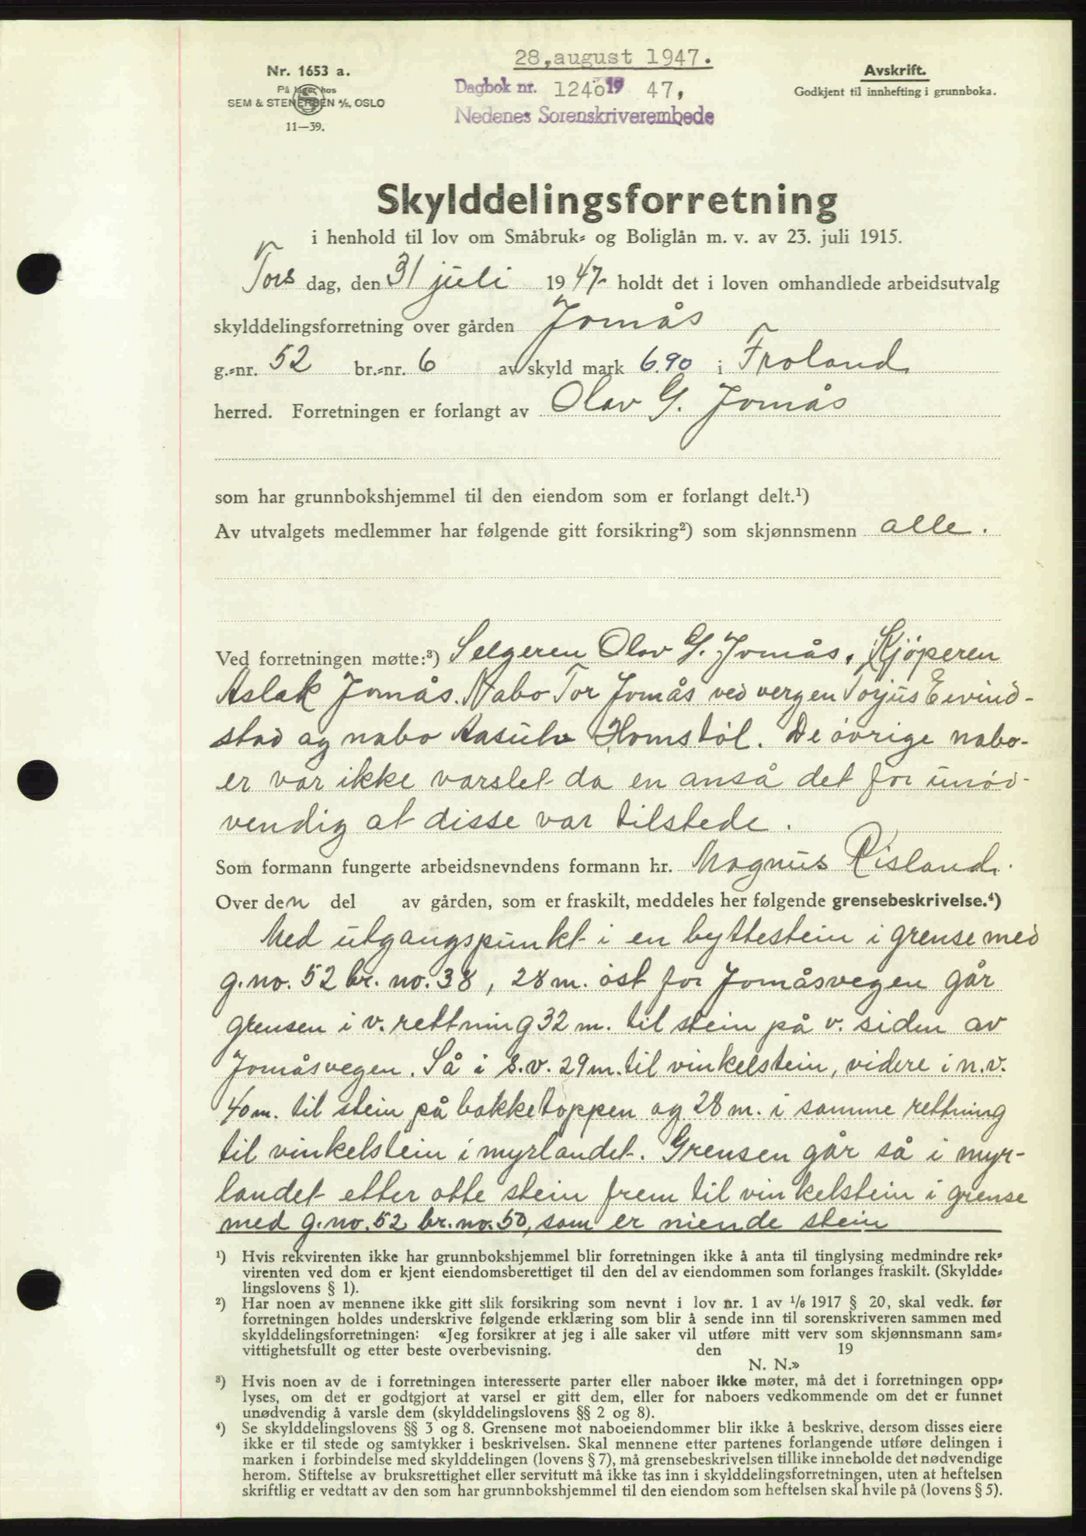 28, august 1947.
Nr. 1653 a.
På lager hos
SEM & STENERSEN A/S, OSLO
11—39.
Dagbok nr. 1246 19 47,
Nedenes Sorenskriverembede
Avskrift.
Godkjent til innhefting i grunnboka.
Skylddelingsforretning
i henhold til lov om Småbruk- og Boliglån m. v. av 23. juli 1915.
Tors dag, den 31 juli 1947 holdt det i loven omhandlede arbeidsutvalg
skylddelingsforretning over gården Jomås
g.-nr. 52 br.-nr. 6 av skyld mark 6.90 i Froland
herred. Forretningen er forlangt av Olav G. Jomås
som har grunnbokshjemmel til den eiendom som er forlangt delt.¹)
Av utvalgets medlemmer har følgende gitt forsikring²) som skjønnsmenn alle.
Ved forretningen møtte:³) Selgeren Olav G. Jomås, Kjöperen
Aslak Jomås. Nabo Tor Jomås ved vergen Torjus Eivind-
stad og nabo Aasulv Homstöl. De övrige nabo-
er var ikke varslet da en anså det for unöd-
vendig at disse var tilstede.
Som formann fungerte arbeidsnevndens formann hr. Magnus Risland.
Over den del av gården, som er fraskilt, meddeles her følgende grensebeskrivelse.⁴)
Med utgangspunkt i en byttestein i grense med
g.no. 52 br. no. 38, 28 m. öst for Jomåsvegen går
grensen i v. rettning 32 m. til stein på v. siden av
Jomåsvegen. Så i s.v. 29 m. til vinkelstein, videre i n.v.
40 m. til stein på bakketoppen og 28 m. i samme rettning
til vinkelstein i myrlandet. Grensen går så i myr-
landet etter otte stein frem til vinkelstein i grense
med g.no. 52 br.no. 50, som er niende stein
¹) Hvis rekvirenten ikke har grunnbokshjemmel blir forretningen ikke å anta til tinglysing medmindre rek-
virenten ved dom er kjent eiendomsberettiget til den del av eiendommen som forlanges fraskilt. (Skyldde-
lingslovens § 1).
²) Har noen av mennene ikke gitt slik forsikring som nevnt i lov nr. 1 av 1/8 1917 § 20, skal vedk. før
forretningen holdes underskrive følgende erklæring som blir å sende inn til sorenskriveren sammen med
skylddelingsforretningen: «Jeg forsikrer at jeg i alle saker vil utføre mitt verv som skjønnsmann sam-
vittighetsfullt og etter beste overbevisning. den 19
N. N.»
³) Hvis noen av de i forretningen interesserte parter eller naboer ikke møter, må det i forretningen opp-
lyses, om det er godtgjort at varsel er gitt dem, eller for naboers vedkommende om det er funnet
unødvendig å varsle dem (skylddelingslovens §§ 2 og 8).
⁴) Se skylddelingslovens §§ 3 og 8. Grensene mot naboeiendommer blir ikke å beskrive, dersom disses eiere
ikke er til stede og samtykker i beskrivelsen. Skal mennene etter partenes forlangende utføre delingen i
marken i forbindelse med skylddelingen (lovens § 7), må grensebeskrivelsen tillike inneholde det nødvendige
herom. Stiftelse av bruksrettighet eller servitutt må ikke tas inn i skylddelingsforretningen, uten at heftelsen
skriftlig er vedtatt av den som har grunnbokshjemmel til den eiendom som heftelsen skal hvile på (lovens § 5).